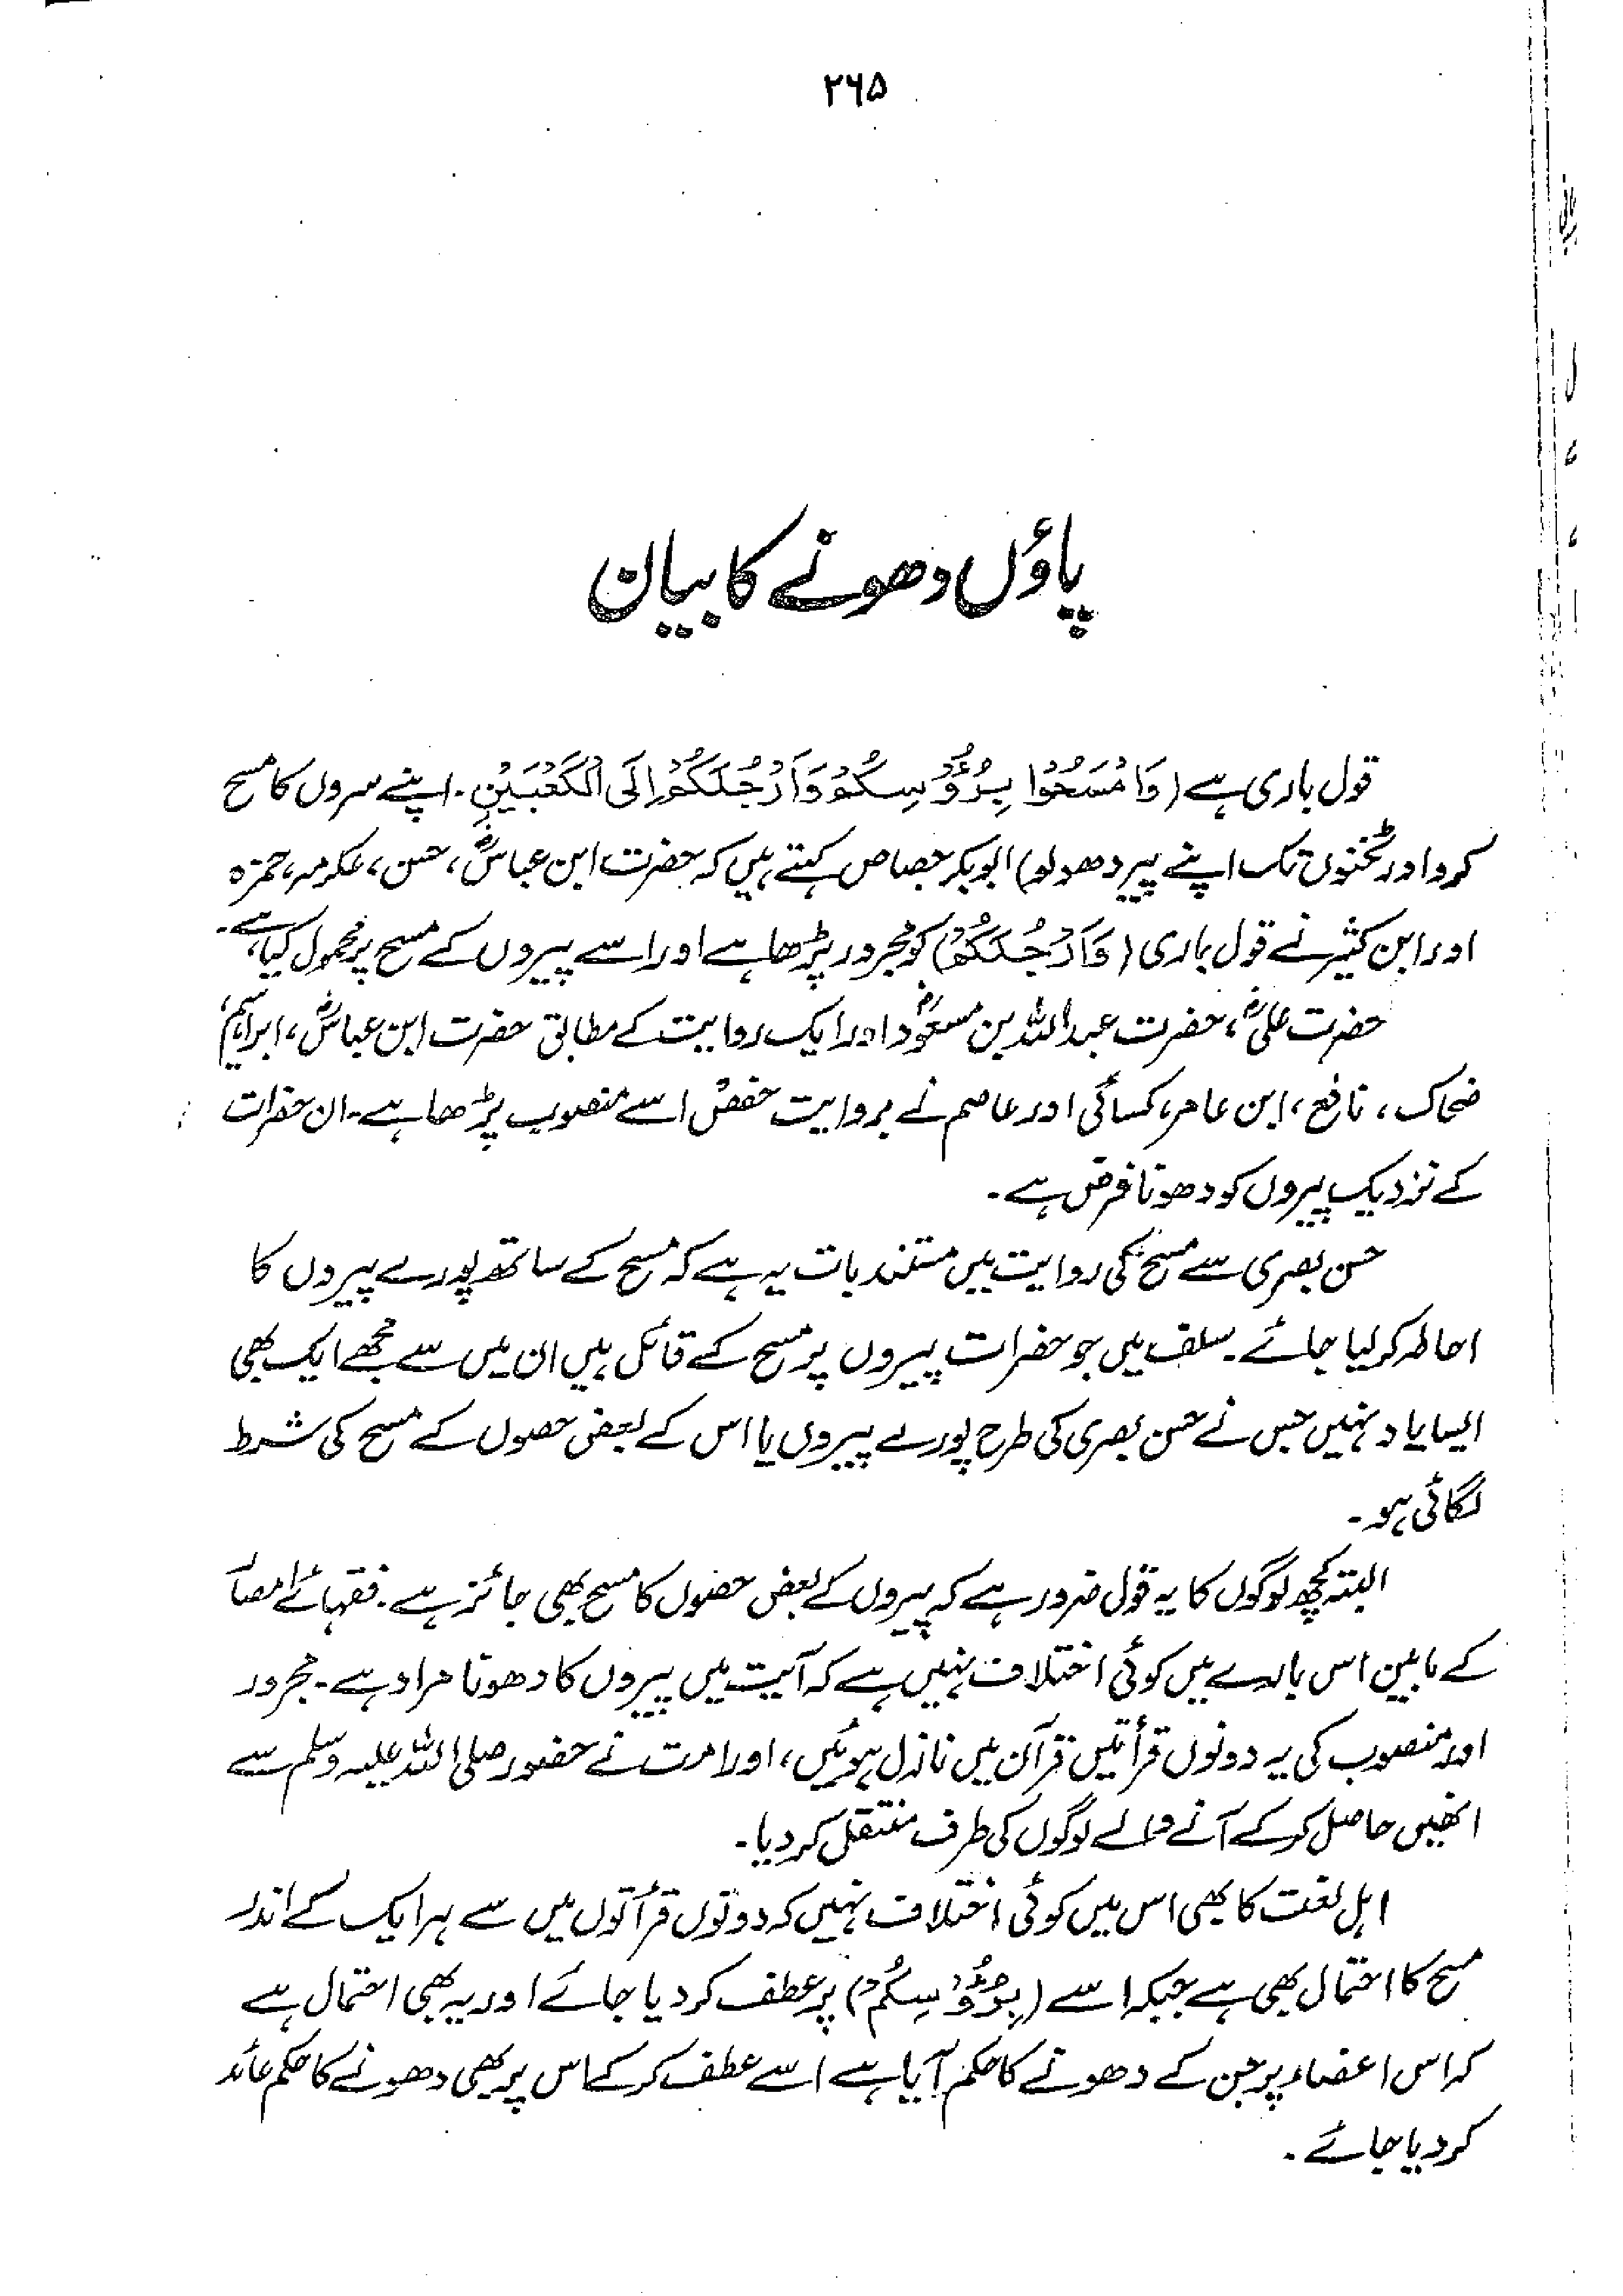 ۲۶۵
پاؤں دھونے کا بیان
قول باری ہے (وَامْسَحُوْا بِرُؤُوْسِكُمْ وَاَرْجُلَكُمْ اِلَى الْكَعْبَيْنِ۔ اپنے سروں کا مسح
کرو اور ٹخنوں تک اپنے پیر دھولو) ابوبکر جصاص کہتے ہیں کہ حضرت ابن عباسؓ، حسن، عکرمہ، حمزہ
اور ابن کثیر نے قول باری (وَاَرْجُلَكُمْ) کو مجرور پڑھا ہے اور اسے پیروں کے مسح پر محمول کیا ہے۔
حضرت علیؓ، حضرت عبداللہ بن مسعودؓ اور ایک روایت کے مطابق حضرت ابن عباسؓ، ابراہیم
ضحاک، نافع، ابن عامر، کسائی اور عاصم نے بروایت حفص اسے منصوب پڑھا ہے۔ ان حضرات
کے نزدیک پیروں کو دھونا فرض ہے۔
حسن بصری سے مسح کی روایت میں مستند بات یہ ہے کہ مسح کے ساتھ پورے پیروں کا
احاطہ کر لیا جائے۔ سلف میں جو حضرات پیروں پر مسح کے قائل ہیں ان میں سے مجھے ایک بھی
ایسا یاد نہیں جس نے حسن بصری کی طرح پورے پیروں یا اس کے بعض حصوں کے مسح کی شرط
لگائی ہو۔
البتہ کچھ لوگوں کا یہ قول ضرور ہے کہ پیروں کے بعض حصوں کا مسح بھی جائز ہے۔ فقہائے امصار
کے مابین اس بارے میں کوئی اختلاف نہیں ہے کہ آیت میں پیروں کا دھونا مراد ہے۔ مجرور
اور منصوب کی یہ دونوں قرأتیں قرآن میں نازل ہوئیں، اور امت نے حضور صلی اللہ علیہ وسلم سے
انھیں حاصل کر کے آنے والے لوگوں کی طرف منتقل کر دیا۔
اہل لغت کا بھی اس میں کوئی اختلاف نہیں کہ دونوں قرأتوں میں سے ہر ایک کے اندر
مسح کا احتمال بھی ہے جبکہ اسے (بِرُؤُوْسِكُمْ) پر عطف کر دیا جائے اور یہ بھی احتمال ہے
کہ اس اعضاء پر جن کے دھونے کا حکم آیا ہے اسے عطف کر کے اس پر بھی دھونے کا حکم عائد
کر دیا جائے۔